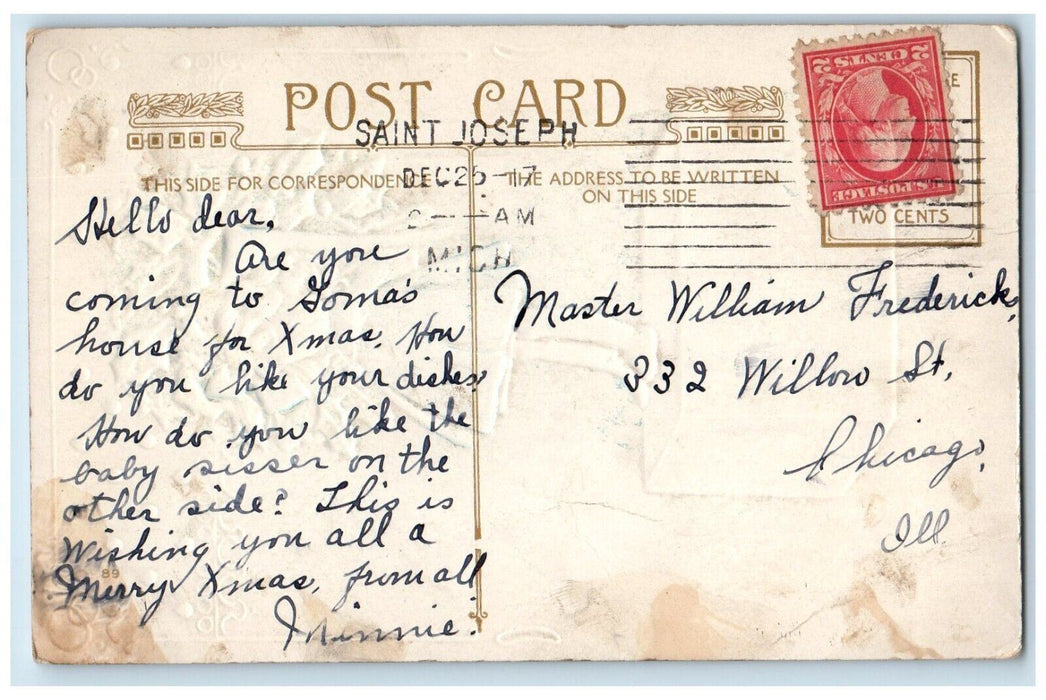 POST CARD
SAINT JOSEPH
DEC 25 - 17
AM
MICH
THIS SIDE FOR CORRESPONDENCE
THE ADDRESS TO BE WRITTEN
ON THIS SIDE
2 CENTS 2
U.S. POSTAGE
RE
TWO CENTS
Hello dear,
Are you
coming to Goma's
house for Xmas. How
do you like your dishes
How do you like the
baby sisser on the
other side? This is
Wishing you all a
Merry Xmas, from all
Minnie.
89
Master William Frederick,
332 Willow St,
Chicago,
Ill.